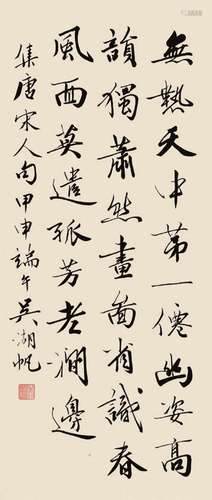 無熱天中第一僊幽姿高
韻獨蕭然畫啚省識春
風面莫遣孤芳老澗邊
集唐宋人句甲申端午吳湖帆